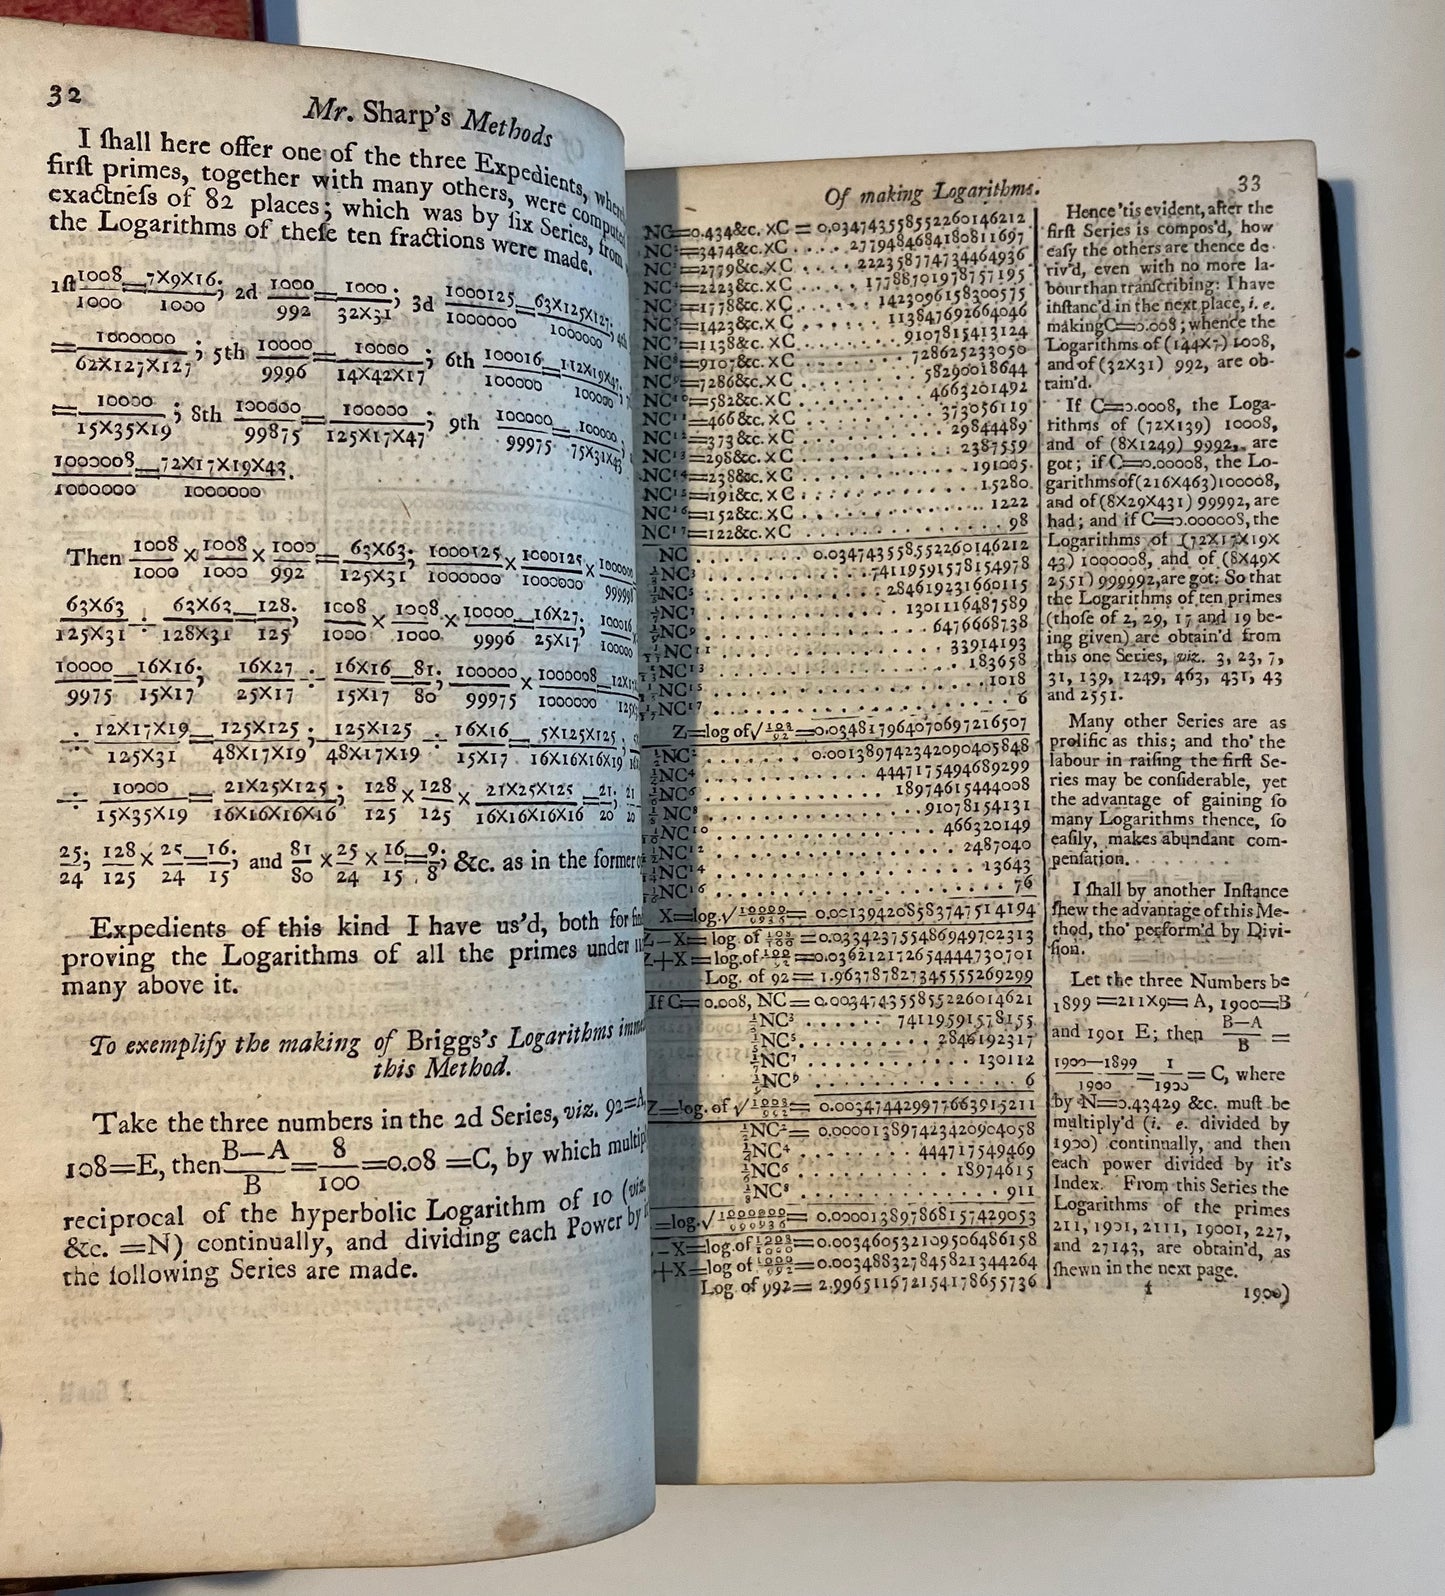 32
Mr. Sharp's Methods
I ſhall here offer one of the three Expedients,
firſt primes, together with many others, were computed
exactneſs of 82 places; which was by ſix Series, from
the Logarithms of theſe ten fractions were made.
1ſt 1008/1000 = 7X9X16/1000; 2d 1000/992 = 1000/32X31; 3d 1000125/1000000 = 63X125X127/1000000; 4th
= 1000000/62X127X127; 5th 10000/9996 = 10000/14X42X17; 6th 100016/100000 = 112X19X47/100000;
= 10000/15X35X19; 8th 100000/99875 = 100000/125X17X47; 9th 100000/99975 = 100000/75X31X43;
1000008/1000000 = 72X17X19X43/1000000.
Then 1008/1000 X 1008/1000 X 1000/992 = 63X63/125X31; 1000125/1000000 X 1000125/1000000 X
63X63/125X31 ÷ 63X63/128X31 = 128/125; 1008/1000 X 1008/1000 X 10000/9996 = 16X27/25X17; 100016/100000 X
10000/9975 = 16X16/15X17; 16X27/25X17 ÷ 16X16/15X17 = 81/80; 100000/99975 X 1000008/1000000 =
÷ 12X17X19/125X31 = 125X125/48X17X19; 125X125/48X17X19 ÷ 16X16/15X17 = 5X125X125/16X16X16X19;
÷ 10000/15X35X19 = 21X25X125/16X16X16X16; 128/125 X 128/125 X 21X25X125/16X16X16X16 = 21/20; 21/20
25/24; 128/125 X 25/24 = 16/15; and 81/80 X 25/24 X 16/15 = 9/8; &c. as in the former
Expedients of this kind I have us'd, both for
proving the Logarithms of all the primes under
many above it.
To exemplify the making of Briggs's Logarithms
this Method.
Take the three numbers in the 2d Series, viz. 92=A,
108=E, then B—A/B = 8/100 = 0.08 = C, by which
reciprocal of the hyperbolic Logarithm of 10 (viz.
&c. =N) continually, and dividing each Power by
the following Series are made.
Of making Logarithms.
33
NC=0.434&c. XC = 0,034743558552260146212
NC²=3474&c. XC . . . . 2779484684180811697
=2779&c. XC . . . . 222358774734464936
NC⁴=2223&c. XC . . . . 17788701978757195
=1778&c. XC . . . . 1423096158300575
=1423&c. XC . . . . 113847692664046
NC⁷=1138&c. XC . . . . 9107815413124
NC⁸=9107&c. XC . . . . 728625233050
NC⁹=7286&c. XC . . . . 58290018644
NC¹⁰=582&c. XC . . . . 4663201492
NC¹¹=466&c. XC . . . . 373056119
NC¹²=373&c. XC . . . . 29844489
NC¹³=298&c. XC . . . . 2387559
NC¹⁴=238&c. XC . . . . 191005
NC¹⁵=191&c. XC . . . . 15280
NC¹⁶=152&c. XC . . . . 1222
NC¹⁷=122&c. XC . . . . 98
NC . . . . 0.034743558552260146212
⅓NC³ . . . . 74119591578154978
⅕NC⁵ . . . . 284619231660115
1/7NC⁷ . . . . 1301116487589
1/9NC⁹ . . . . 6476668738
NC¹¹ . . . . 33914193
NC¹³ . . . . 183658
NC¹⁵ . . . . 1018
NC¹⁷ . . . . 6
Z=log of √108/92=0.034817964070697216507
½NC² . . . . 0.001389742342090405848
¼NC⁴ . . . . 4447175494689299
⅙NC⁶ . . . . 18974615444008
⅛NC⁸ . . . . 91078154131
NC¹⁰ . . . . 466320149
NC¹² . . . . 2487040
NC¹⁴ . . . . 13643
NC¹⁶ . . . . 76
X=log.√10000/9936= 0.001394208583747514194
Z—X=log. of 108/100=0.033423755486949702313
Z+X=log.of 100/92=0.036212172654444730701
Log. of 92=1.963787827345555269299
If C=0.008, NC=0.003474355855226014621
⅓NC³ . . . . 74119591578155
⅕NC⁵ . . . . 2846192317
NC⁷ . . . . 130112
NC⁹ . . . . 6
Z=log. of √1008/992= 0.003474429977663915211
½NC²= 0.000013897423420904058
¼NC⁴ . . . . 444717549469
⅙NC⁶ . . . . 18974615
⅛NC⁸ . . . . 911
=log.√1000000/999936= 0.000013897868157429053
—X=log.of 1008/1000=0.003460532109506486158
+X=log of 1000/992=0.003488327845821344264
Log. of 992=2.996511672154178655736
Hence 'tis evident, after the
firſt Series is compos'd, how
eaſy the others are thence de-
riv'd, even with no more la-
bour than tranſcribing: I have
inſtanc'd in the next place, i. e.
making C=0.008; whence the
Logarithms of (144X7) 1008,
and of (32X31) 992, are ob-
tain'd.
If C=0.0008, the Loga-
rithms of (72X139) 10008,
and of (8X1249) 9992, are
got; if C=0.00008, the Lo-
garithms of (216X463) 100008,
and of (8X29X431) 99992, are
had; and if C=0.000008, the
Logarithms of (72X17X19X
43) 1000008, and of (8X49X
2551) 999992, are got: So that
the Logarithms of ten primes
(thoſe of 2, 29, 17 and 19 be-
ing given) are obtain'd from
this one Series, viz. 3, 23, 7,
31, 139, 1249, 463, 431, 43
and 2551.
Many other Series are as
prolific as this; and tho' the
labour in raiſing the firſt Se-
ries may be conſiderable, yet
the advantage of gaining ſo
many Logarithms thence, ſo
eaſily, makes abundant com-
penſation.
I ſhall by another Inſtance
ſhew the advantage of this Me-
thod, tho' perform'd by Divi-
ſion.
Let the three Numbers be
1899=211X9=A, 1900=B
and 1901 E; then B—A/B =
1900—1899/1900 = 1/1900 = C, where
by N=0.43429 &c. muſt be
multiply'd (i. e. divided by
1900) continually, and then
each power divided by it's
Index. From this Series the
Logarithms of the primes
211, 1901, 2111, 19001, 227,
and 27143, are obtain'd, as
ſhewn in the next page.
1900)